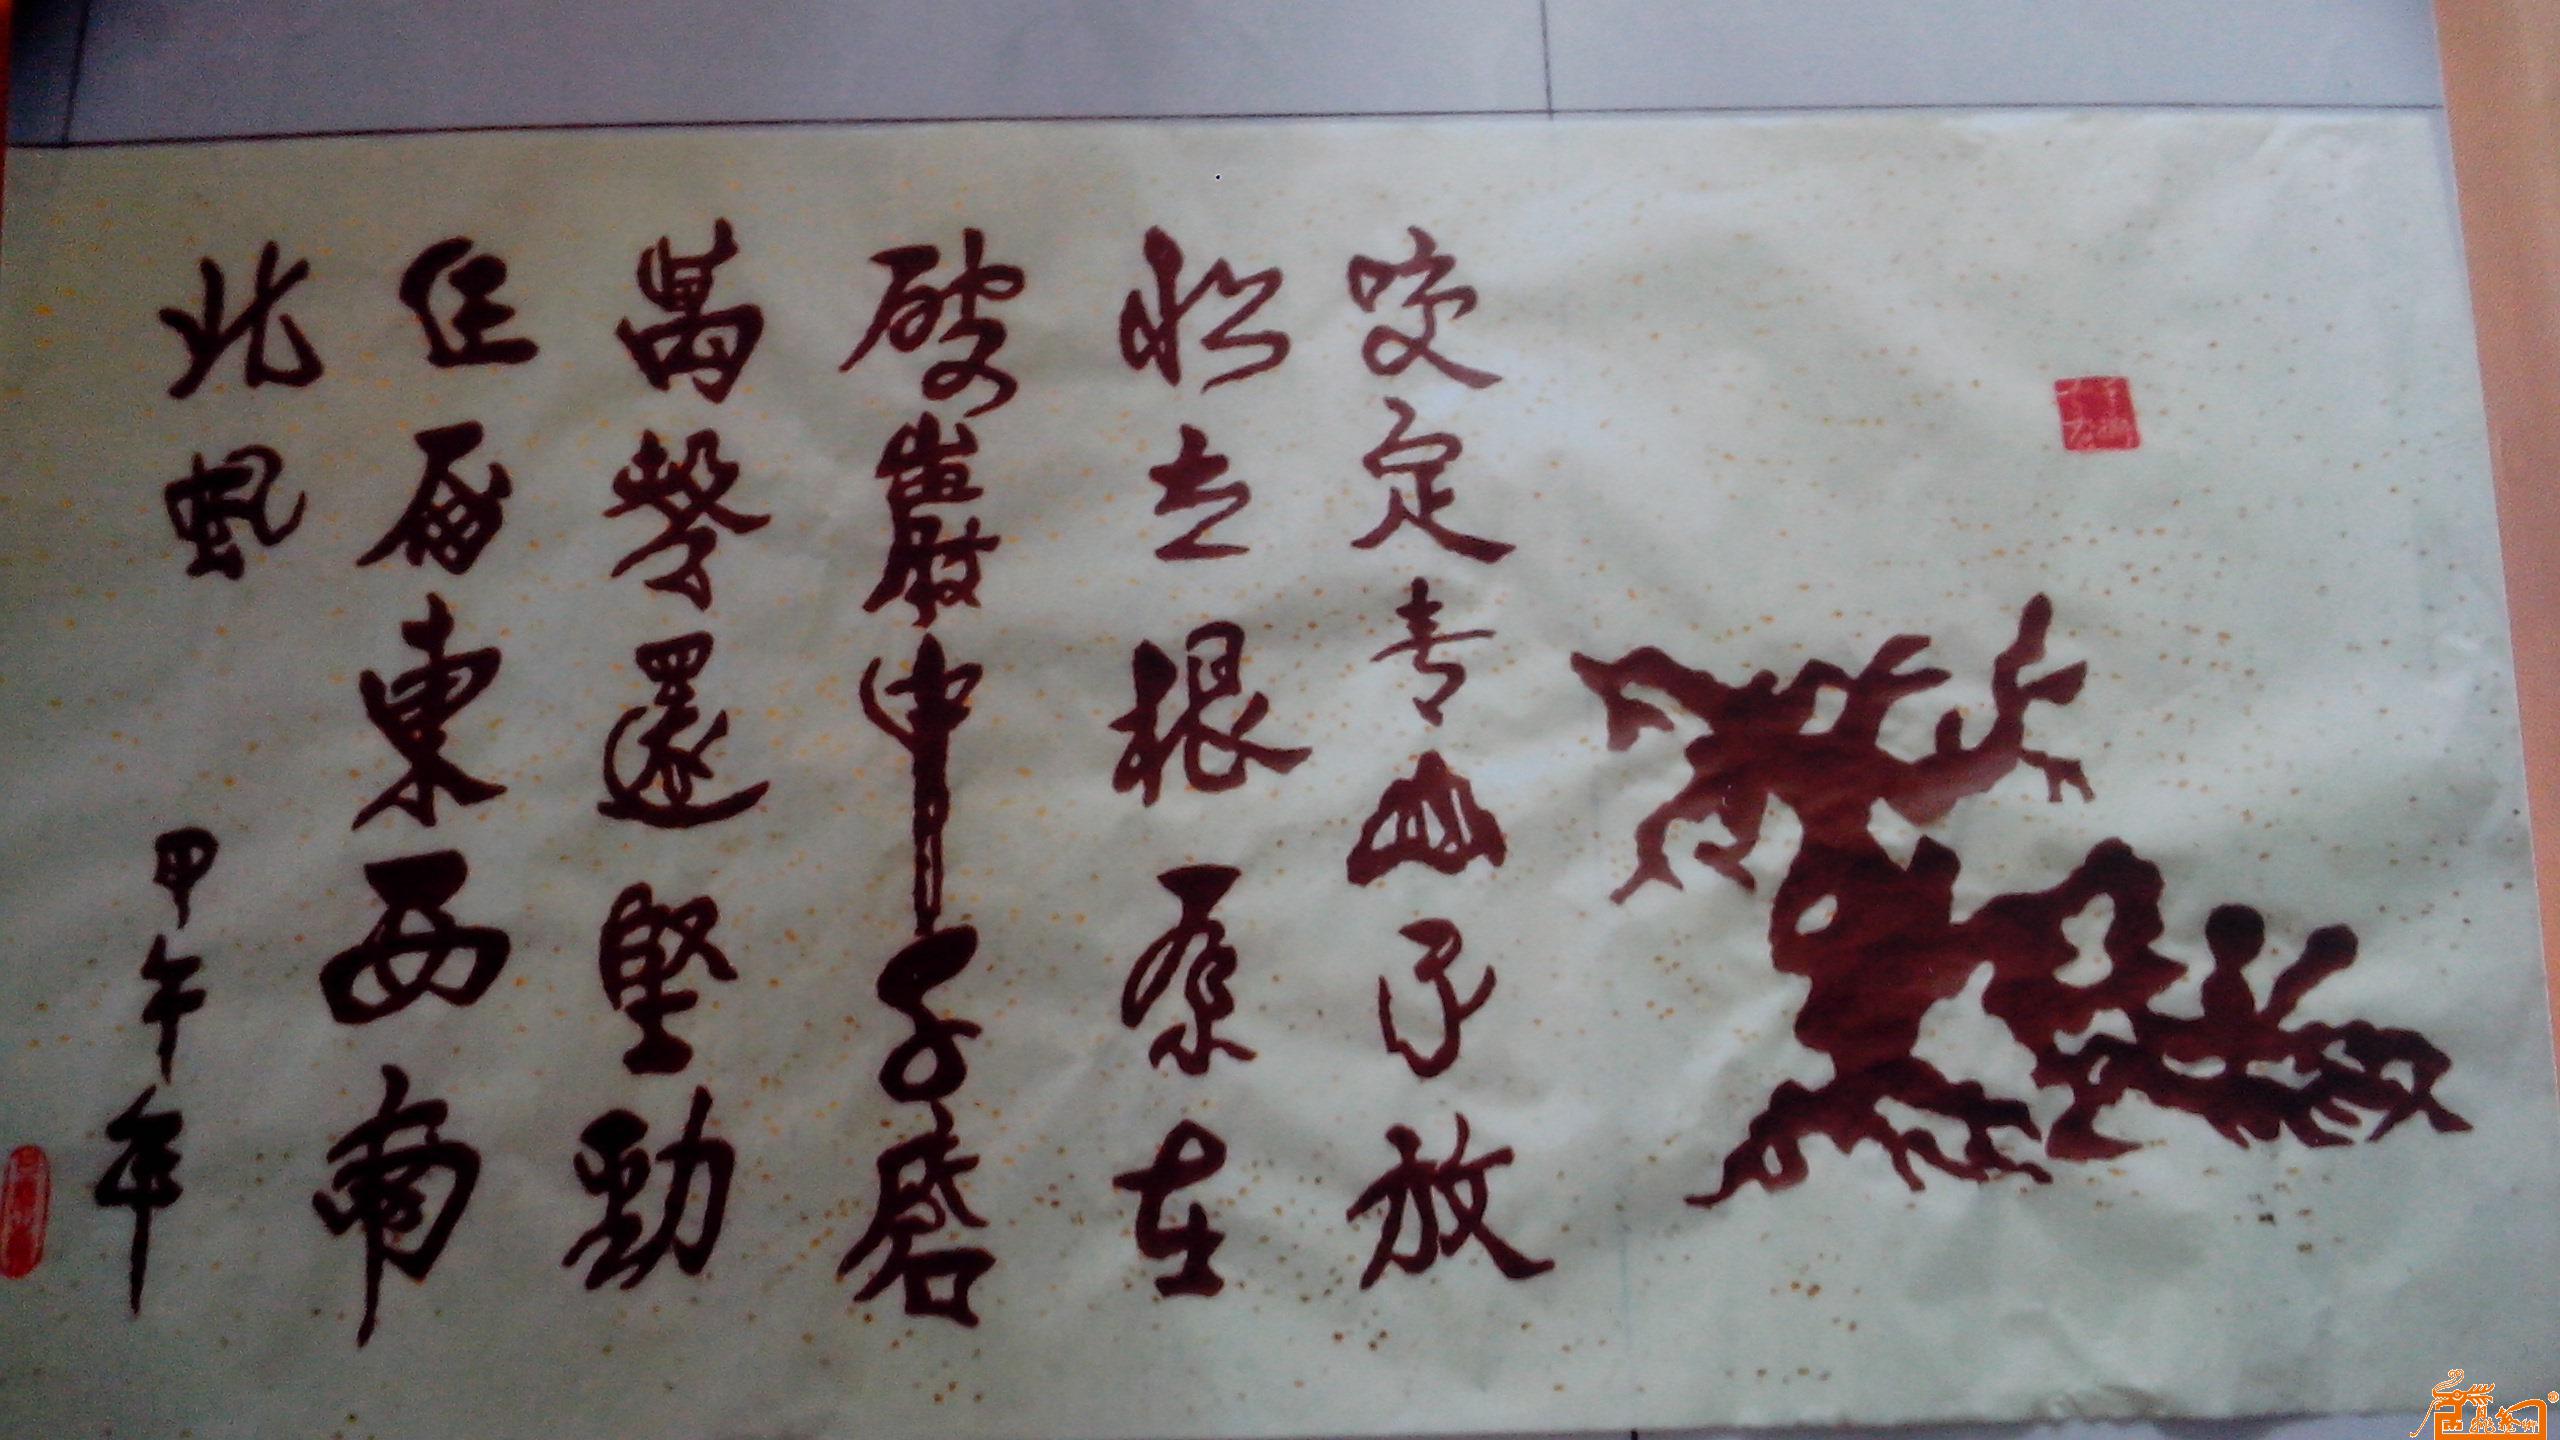 咬定青山不放
松立根原在
破巖中千磨
萬擊還堅勁
任爾東西南
北風
甲午年